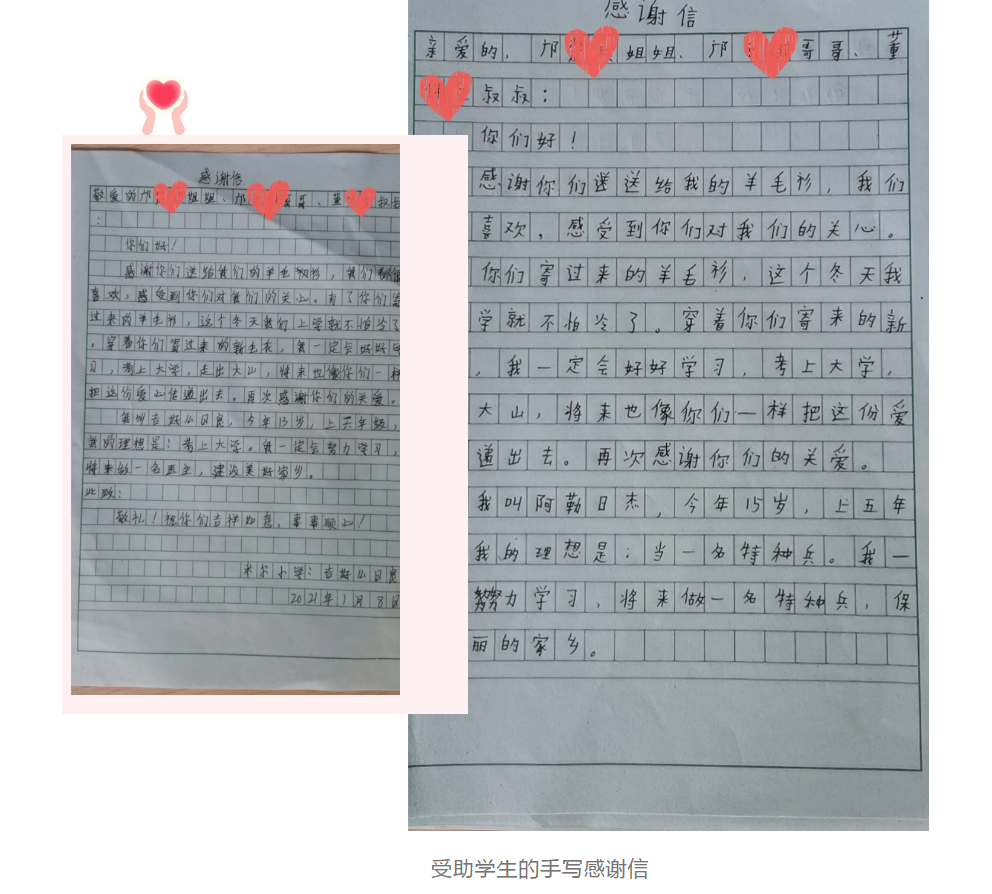 感谢信
敬爱的邝姐姐、邝哥、董叔
：
你们好！
感谢你们送给我们的羊毛衫，我们
喜欢，感受到你们对我们的关心。有了你们寄
过来的羊毛衫，这个冬天我们上学就不怕冷了
。穿着你们寄过来的新毛衣，我一定会好好学
习，考上大学，走出大山，将来也像你们一样
把这份爱心传递出去。再次感谢你们的关爱。
我叫吉好么日良，今年13岁，上五年级，
我的理想是：考上大学。我一定会努力学习，
将来做一名医生，建设美好家乡。
此致：
敬礼！祝你们吉祥如意，事事顺心！
米尔小学：吉好么日良
2021年1月8日
感谢信
亲爱的，邝姐姐、邝哥哥、董
叔叔：
你们好！
感谢你们送送给我的羊毛衫，我们
喜欢，感受到你们对我们的关心。
你们寄过来的羊毛衫，这个冬天我
学就不怕冷了。穿着你们寄来的新
，我一定会好好学习，考上大学，
大山，将来也像你们一样把这份爱
递出去。再次感谢你们的关爱。
我叫阿勒日杰，今年15岁，上五年
我的理想是：当一名特种兵。我一
努力学习，将来做一名特种兵，保
丽的家乡。
受助学生的手写感谢信